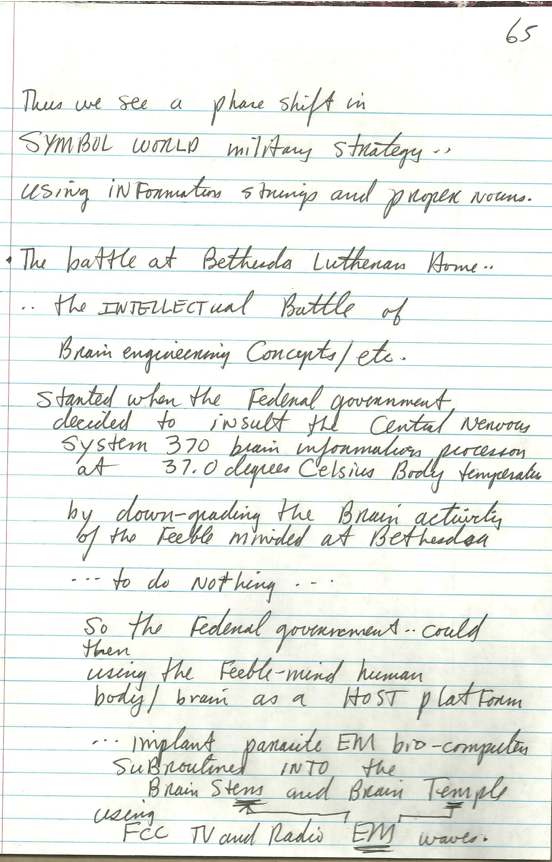 65
Thus we see a phase shift in
SYMBOL WORLD military strategy..
using information strings and proper nouns.
• The battle at Bethesda Lutheran Home..
.. the INTELLECTual Battle of
Brain engineering Concepts/etc.
started when the Federal government
decided to insult the Central Nervous
System 370 brain information processor
at 37.0 degrees Celsius Body temperature
by down-grading the Brain activity
of the Feeble minded at Bethesda
... to do Nothing ...
So the Federal government.. could
then
using the Feeble-mind human
body/brain as a HOST platform
... implant parasite EM bio-computer
SUBroutines INTO the
Brain Stem and Brain Temple
using
FCC TV and Radio EM waves.